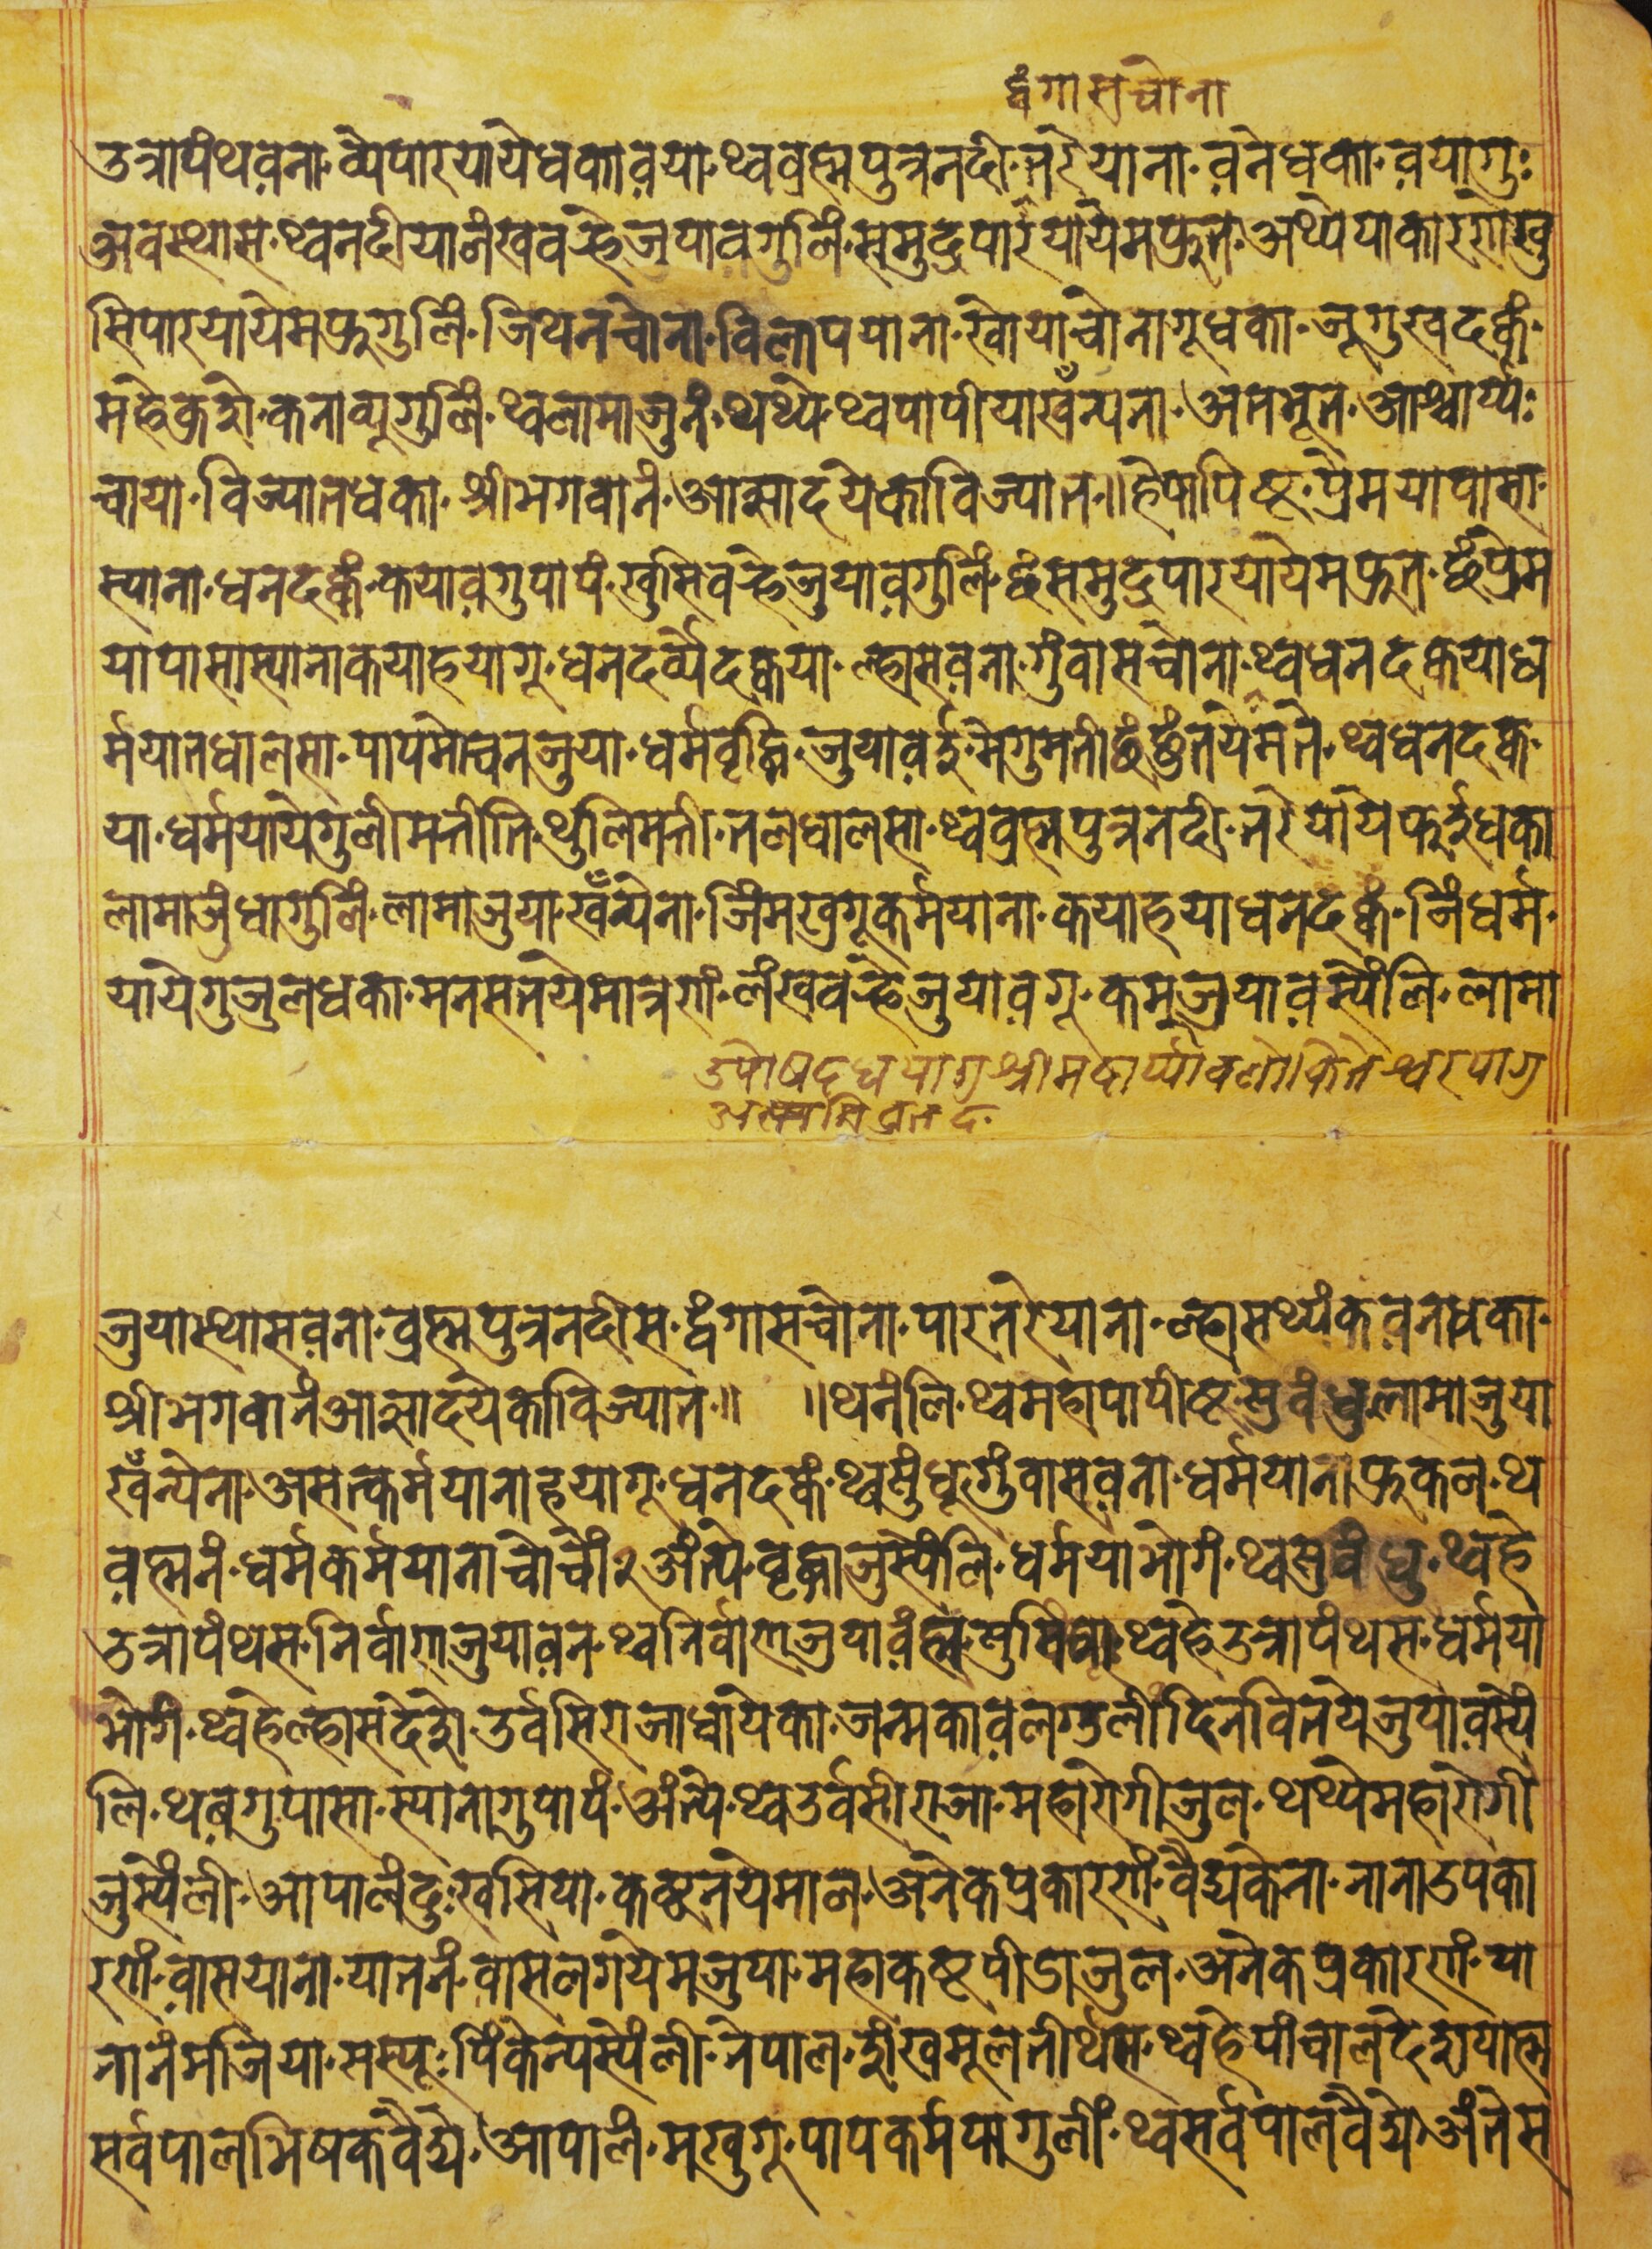 द्वंगासचोना
उत्रापंथव़ना·व्येपारयायेधकाव़या·थ्वव्रह्मपुत्रनदी·तरेयाना·व़नेधका·व़यागुः
अवस्थास·थ्वनदीयालंखवह्नेजुयावगुलिं·समुद्रपारयायेमफुत·अथ्येयाकारणेखु
सिपारयायेमफुगुलिं·जिथनचोना·विलापयाना·खोयाचोनागूधका·जूगुखदक्कं·
महेक्रसे·कनाव्यूगुलिं·थ्वलामाजुनं·थथ्ये·थ्वपापीयाखँन्यना·अतभूत·आश्चार्य्यः
चाया·विज्यातधका·श्रीभगवानं·आज्ञादयेकाविज्यात॥हेपापिष्ट·प्रेमयापासा·
स्याना·धनदक्कं·कयाव़गुपापं·खुसिवह्नेजुयाव़गुलिं·छंसमुद्रपारयायेमफुत·छंप्रेम
यापासास्यानाकयाहयागू·धनदर्व्येदक्कया·ल्हासव़ना·गुंवासचोना·थ्वधनदक्कयाध
र्मयातधालसा·पापमोचनजुया·धर्मवृद्धि·जुयाव़ई·मेगुमती·छंछुंतयेमते·थ्वधनदक्क·
या·धर्मयायेगुलीमतीति·थुलिमती·तलधालसा·थ्वव्रह्मपुत्रनदी·तरेयायेफुईधका
लामाजुंधागुलिं·लामाजुया·खँन्येना·जिंमखुगूकर्मयाना·कयाहयाधनदक्कं·जिंधर्म·
यायेगुजुलधका·मनसतयेमात्रणं·लंखवह्नेजुयाव़गू·कमजुयाव़स्येंलि·लामा
उपोषदधयागु श्रीमदार्य्यावलोकितेश्वरयागु
जुयास्थासव़ना·व्रह्मपुत्रनदीस·द्वंगासचोना·पारतरेयाना·ल्हासथ्यंकव़नधका·
श्रीभगवानंआज्ञादयेकाविज्यात॥ ॥थनंलि·थ्वमहापापीष्ट·सुवंधु·लामाजुया
खँन्येना·असत्कर्मयानाहयागू·धनदक्कं·थ्वसुंधूगुंवासव़ना·धर्मयानाफुकल·थ
व़ह्मनं·धर्मकर्मयानाचोचों२अंत्ये·वृद्धाजुस्येंलि·धर्मयाभोगं·थ्वसुवंधु·थ्वहे
उत्रापंथस·निर्वाणजुयाव़न·थ्वनिर्वाणजुयाव़ंह्म·थ्वहेउत्रापंथस·धर्मया
भोगं·थ्वहेल्हासदेशे·उर्वसिराजाधायेका·जन्मकाव़लगुलीदिनवितयेजुयाव़स्यें
लि·थव़गुपासा·स्यानागुपापं·अंत्ये·थ्वउर्वसीराजा·महारोगीजुल·थथ्येमहारोगी
जुस्येंली·आपालंदुःखसिया·कष्टनयेमाल·अनेकप्रकारणं·वैद्यकेना·नानाउपका
रणं·वासयाना·यातनं·वासलगयेमजुया·महाकष्टपीडाजुल·अनेकप्रकारणं·या
नानंमजिया·सस्यूःपिंकेन्यस्येंली·नेपाल·शंखमूलतीर्थस·थ्वहेपांचालदेशयाह्म
सर्वपालभिषकवैद्ये·आपालं·मखुगू·पापकर्मयागुलीं·थ्वसर्वपालवैद्ये·अंतेस